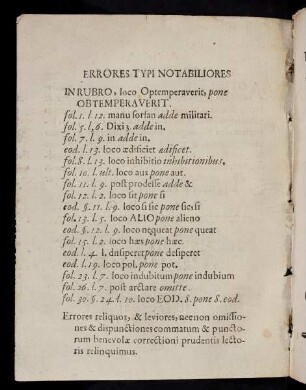 ERRORES TYPI NOTABILIORES
IN RUBRO, loco Optemperaverit, pone
OBTEMPERAVERIT.
fol. 1. l. 12. manu forsan adde militari.
fol. 5. l. 6. Dixi 3. adde in.
fol. 7. l. 9. in adde in.
eod. l. 13. loco ædificiet adificet.
fol. 8. l. 13. loco inhibitio inhibitionibus.
fol. 10. l. ult. loco aus pone aut.
fol. 11. l. 9. post prodesse adde &
fol. 12. l. 2. loco sit pone si
eod. §. 11. l. 9. loco si sic pone sic si
fol. 13. l. 5. loco ALIO pone alieno
eod. §. 12. l. 9. loco nequeat pone queat
fol. 15. l. 2. loco hæs pone hæc.
eod. l. 4. l. dnsperet pone desperet
eod. l. 19. loco pol. pone pot.
fol. 23. l. 7. loco indubitum pone indubium
fol. 26. l. 7. post arctare omitte.
fol. 30. §. 24. l. 10. loco EOD. 8. pone S. eod.
Errores reliquos, & leviores, necnon omissio-
nes & dispunctiones commatum & puncto-
rum benevolæ correctioni prudentis lecto-
ris relinquimus.